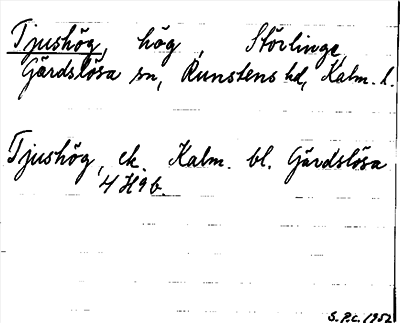 Tjushög, hög, Störlinge,
Gärdslösa sn, Runstens hd, Kalm. l.
Tjushög, ek. Kalm. bl. Gärdslösa
4 H 9 b.
S.P.C. 1952